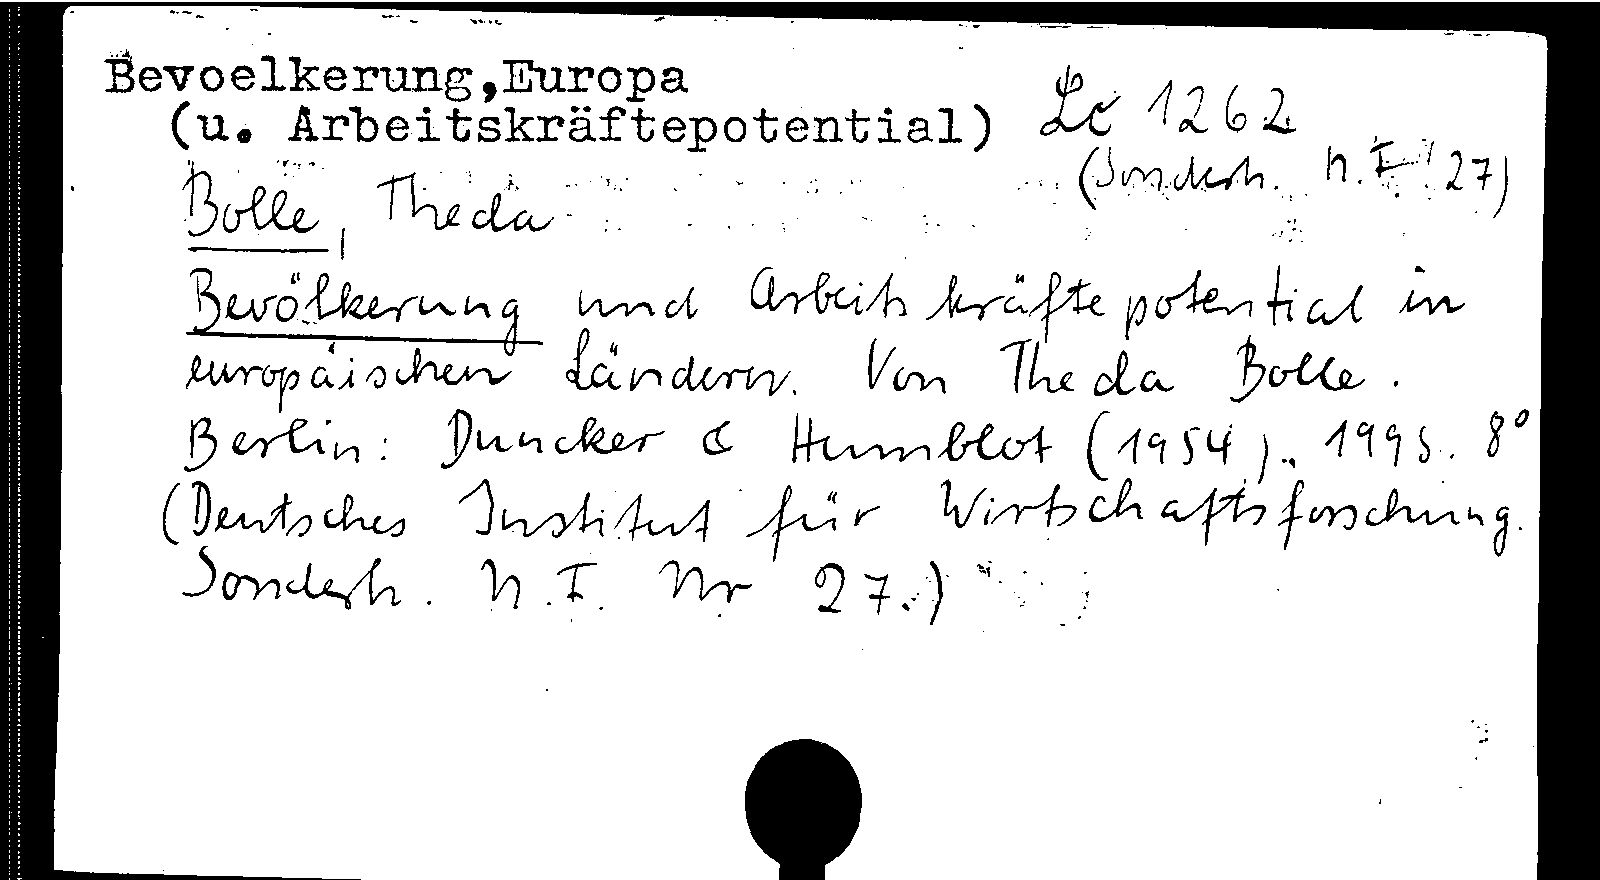 Bevoelkerung,Europa
(u. Arbeitskräftepotential)
Lc 1262
(Sonderh. N.F. 27)
Bolle, Theda
Bevölkerung und Arbeitskräftepotential in
europäischen Ländern. Von Theda Bolle.
Berlin: Duncker & Humblot (1954). 199 S. 8°
(Deutsches Institut für Wirtschaftsforschung.
Sonderh. N.F. Nr 27.)